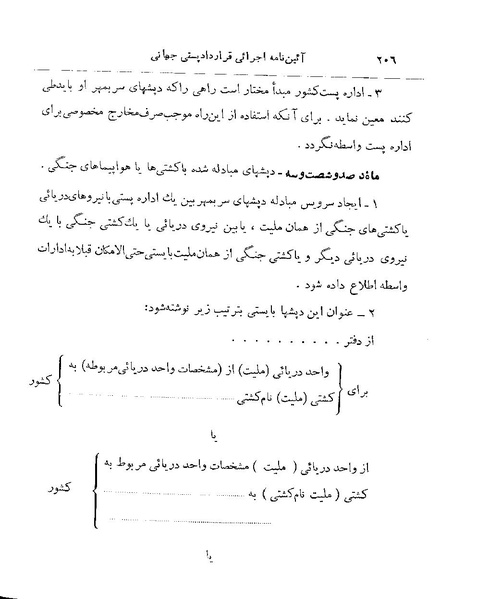 ۲۰۶ آئین‌نامه اجرائی قرارداد پستی جهانی
۳ ـ اداره پست کشور مبدأ مختار است راهی را که دپشهای سربمهر او باید طی
کنند معین نماید . برای آنکه استفاده از این راه موجب صرف مخارج مخصوصی برای
اداره پست واسطه نگردد .
ماده صد و شصت و سه ـ دپشهای مبادله شده با کشتی‌ها یا هواپیماهای جنگی .
۱ ـ ایجاد سرویس مبادله دپشهای سربمهر بین یك اداره پستی با نیروهای دریائی
یا کشتی‌های جنگی از همان ملیت ، یا بین نیروی دریائی یا یك کشتی جنگی با یك
نیروی دریائی دیگر و یا کشتی جنگی از همان ملیت بایستی حتی‌الامکان قبلا به ادارات
واسطه اطلاع داده شود .
۲ ـ عنوان این دپشها بایستی بترتیب زیر نوشته شود:
از دفتر . . . . . . . . . .
برای { واحد دریائی (ملیت) از (مشخصات واحد دریائی مربوطه) به
کشتی (ملیت) نام کشتی ........ { کشور
یا
از واحد دریائی ( ملیت ) مشخصات واحد دریائی مربوط به
کشتی ( ملیت نام کشتی ) به ........ { کشور
........
یا